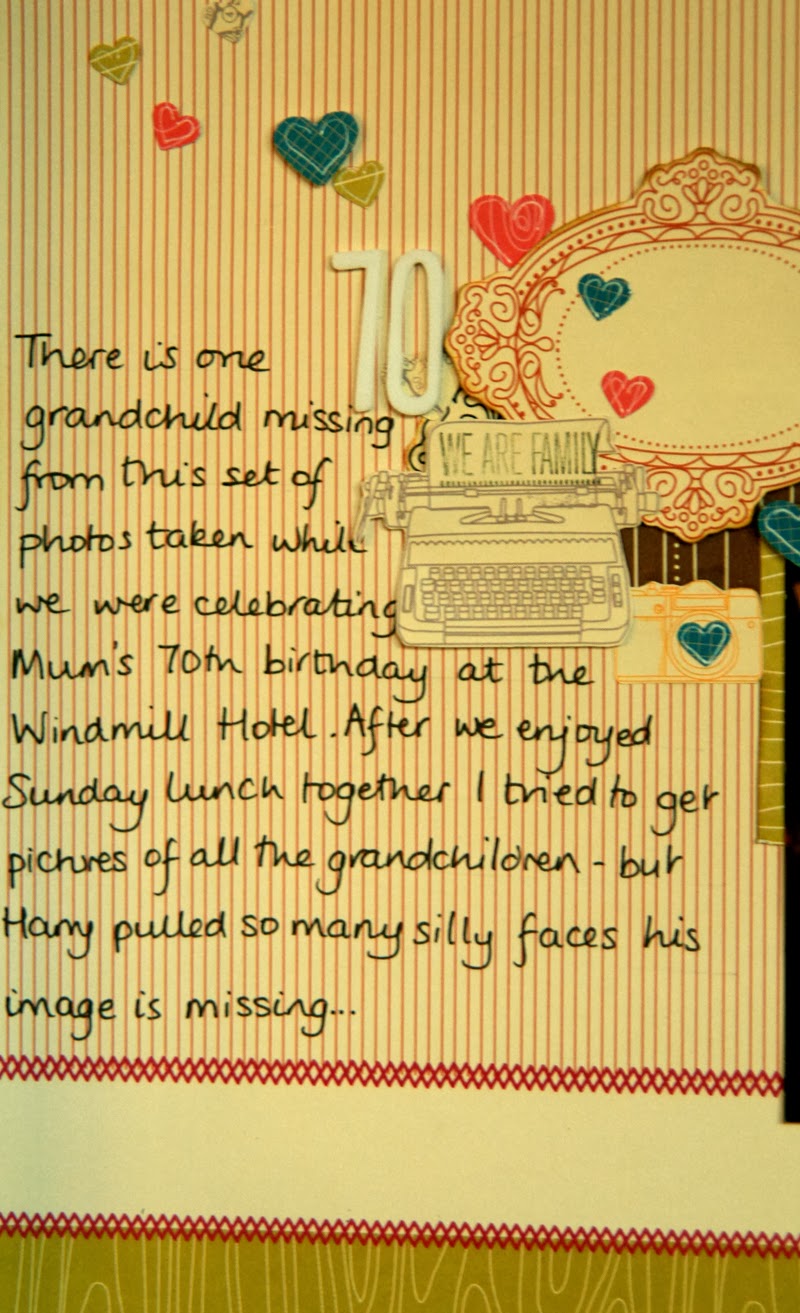 70
There is one
grandchild missing
WE ARE FAMILY
from this set of
photos taken while
we were celebrating
Mum's 70th birthday at the
Windmill Hotel. After we enjoyed
Sunday lunch together I tried to get
pictures of all the grandchildren - but
Harry pulled so many silly faces his
image is missing...